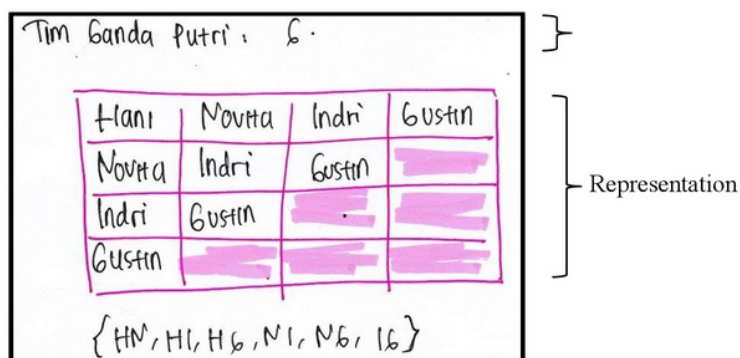 Tim Ganda Putri : 6.
Hani Novita Indri Gustin
Novita Indri Gustin
Indri Gustin
Gustin
Representation
{HN, HI, HG, NI, NG, IG}